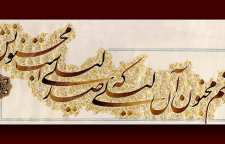 مجنون آن لیلی که صد لیلی است مجنونش